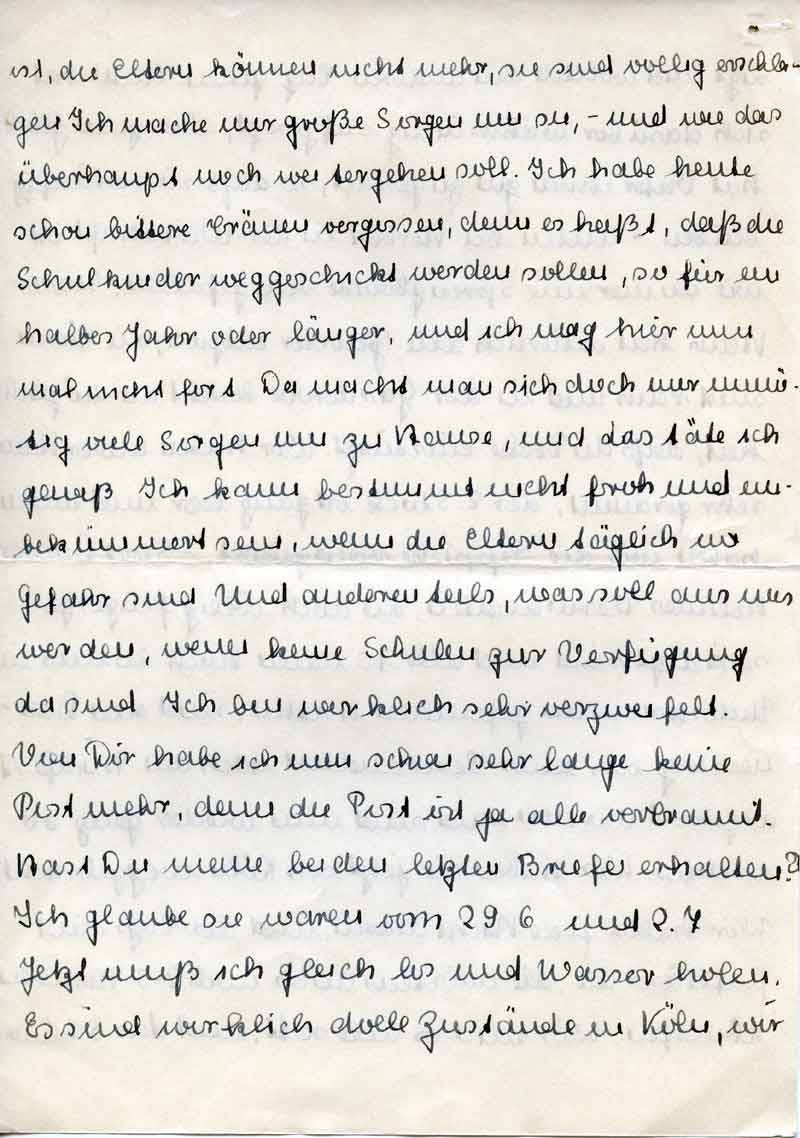 ist, die Eltern können nicht mehr, sie sind völlig erschla-
gen Ich mache mir große Sorgen um sie, - und wie das
überhaupt noch weitergehen soll. Ich habe heute
schon bittere Tränen vergossen, denn es heißt, daß die
Schulkinder weggeschickt werden sollen, so für ein
halbes Jahr oder länger, und ich mag hier nun
mal nicht fort Da macht man sich doch nur unnö-
tig viele Sorgen um zu Hause, und das täte ich
genaß Ich kann bestimmt nicht froh und un-
bekümmert sein, wenn die Eltern täglich in
Gefahr sind Und anderenteils, was soll aus uns
werden, wenn keine Schulen zur Verfügung
da sind Ich bin wirklich sehr verzweifelt.
Von Dir habe ich nun schon sehr lange keine
Post mehr, denn die Post ist ja alle verbrannt.
Hast Du meine beiden letzten Briefe erhalten?
Ich glaube sie waren vom 29 6 und 2.7
Jetzt muß ich gleich los und Wasser holen.
Es sind wirklich dolle Zustände in Köln, wir